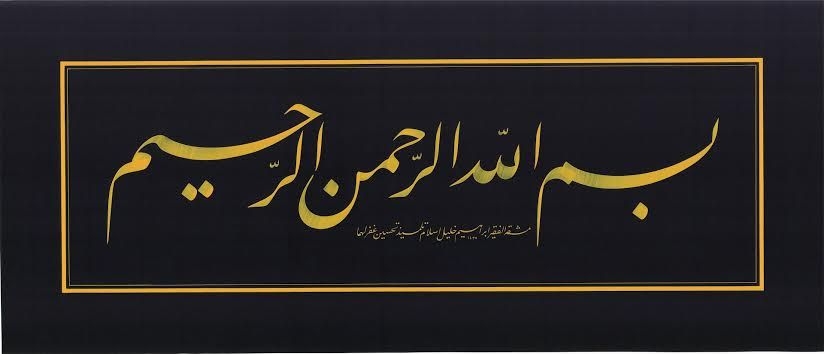 بسم الله الرحمن الرحيم
مشقه الفقير ابراهيم خليل اسلام تلميذ تحسين غفر لهما